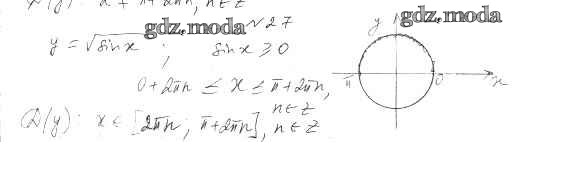 D(y): x ≠ π + 2πn, n ∈ Z
gdz.moda №27
y = √sin x ; sin x ≥ 0
0 + 2πn ≤ x ≤ π + 2πn,
n ∈ Z
D(y): x ∈ [2πn ; π + 2πn], n ∈ Z
gdz.moda
y
π
0
x